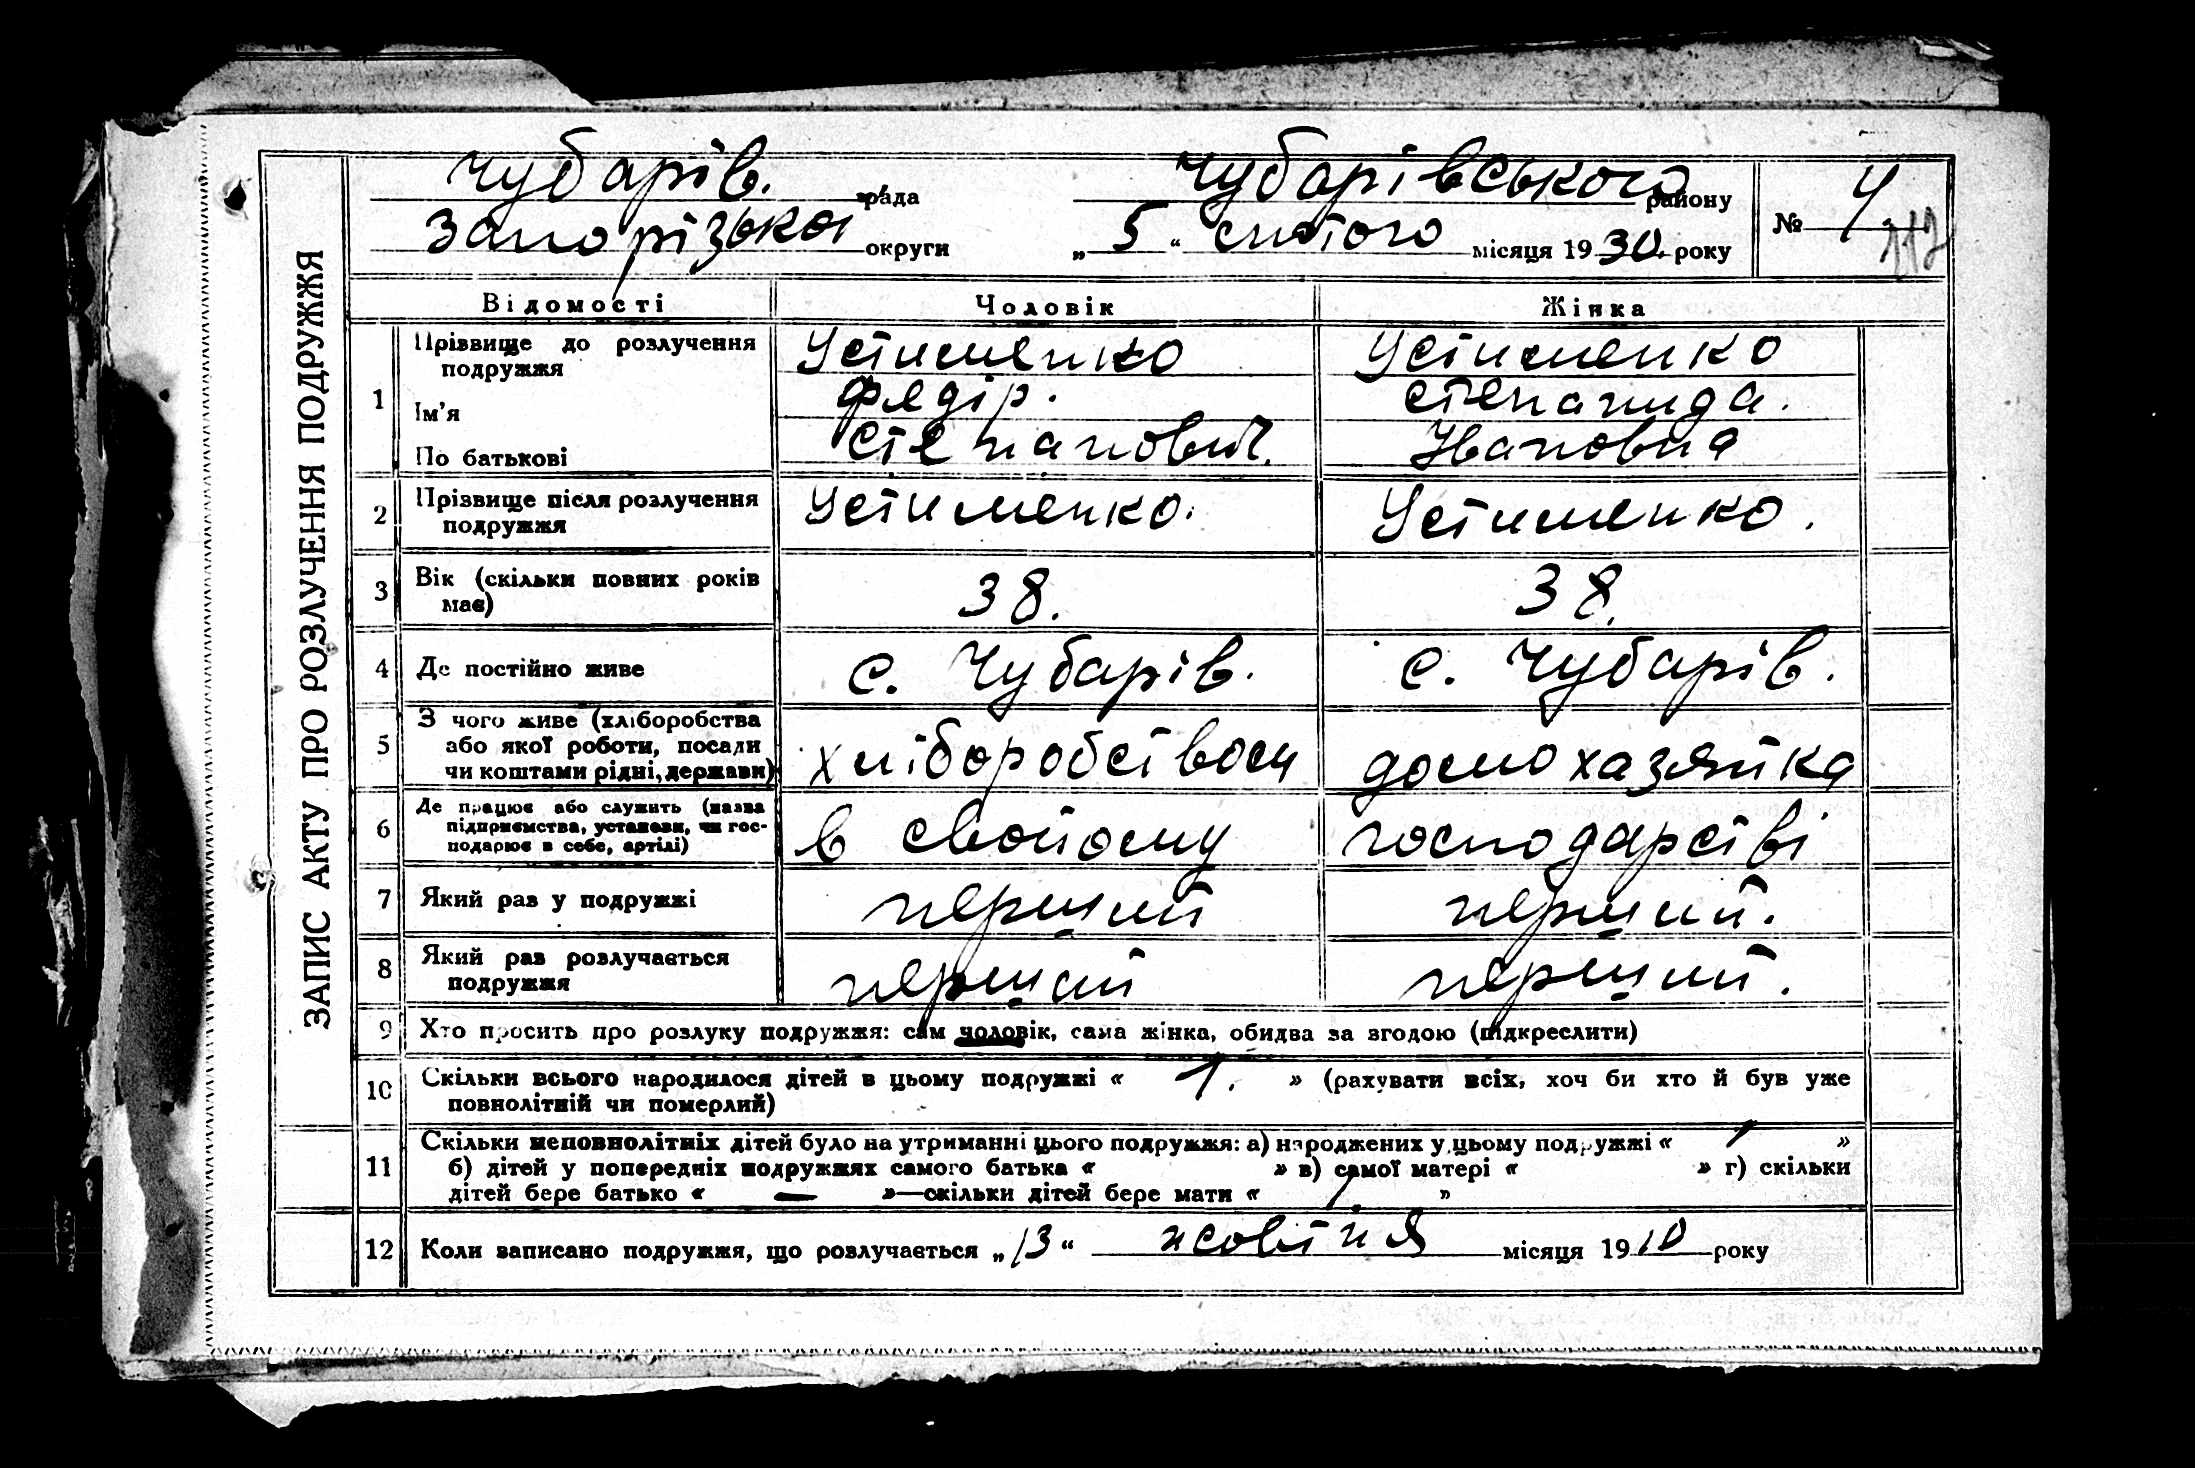 ЗАПИС АКТУ ПРО РОЗЛУЧЕННЯ ПОДРУЖЖЯ
Чубарів. рада Чубарівського району № 4
117
Запорізької округи „ 5 “ лютого місяця 1930. року
Відомості Чоловік Жінка
1 Прізвище до розлучення подружжя Устименко Устименко
Ім'я Федір. Степанида.
По батькові Степанович. Ивановна
2 Прізвище після розлучення подружжя Устименко. Устименко.
3 Вік (скільки повних років має) 38. 38.
4 Де постійно живе с. Чубарів. с. Чубарів.
5 З чого живе (хліборобства або якої роботи, посади чи коштами рідні, держави) хліборобством домохазяйка
6 Де працює або служить (назва підприємства, установи, чи господарює в себе, артілі) в свойому господарстві
7 Який раз у подружжі перший перший.
8 Який раз розлучається подружжя перший перший.
9 Хто просить про розлуку подружжя: сам чоловік, сама жінка, обидва за згодою (підкреслити)
10 Скільки всього народилося дітей в цьому подружжі « 1. » (рахувати всіх, хоч би хто й був уже
повнолітній чи померлий)
11 Скільки неповнолітніх дітей було на утриманні цього подружжя: а) народжених у цьому подружжі « 1 »
б) дітей у попередніх подружжях самого батька « » в) самої матері « » г) скільки
дітей бере батько « — »—скільки дітей бере мати « 1 »
12 Коли записано подружжя, що розлучається „ 13 “ жовтня місяця 1910 року